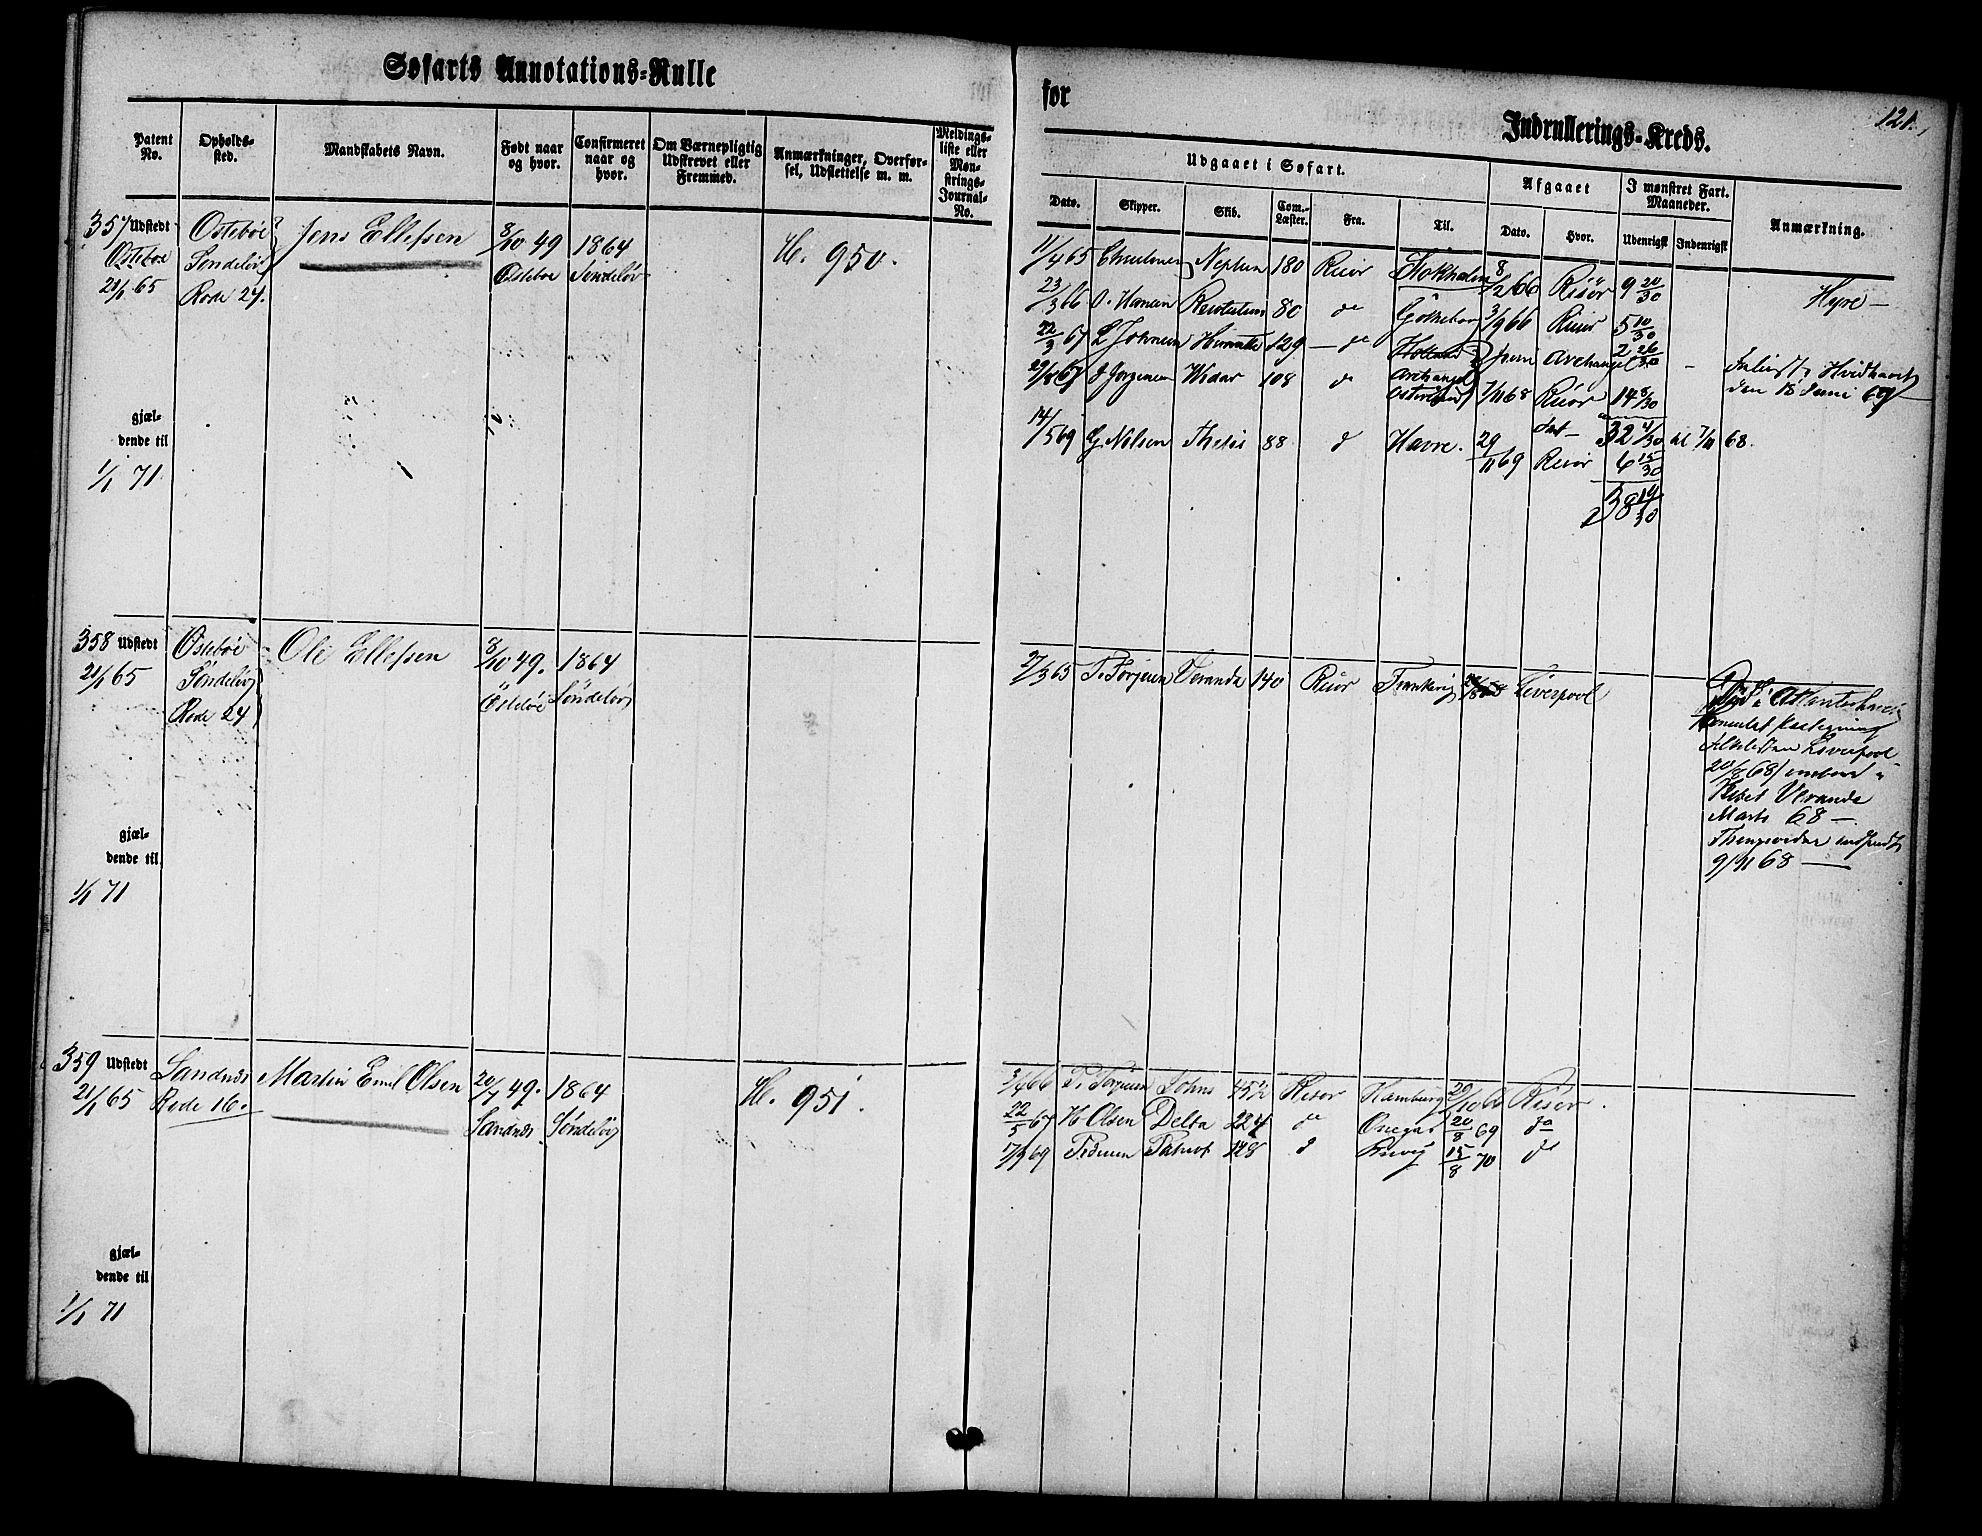 Søfarts Annotations-Rulle
for
Indrullerings-Kreds.
121.
Patent No.
Opholds-sted.
Mandskabets Navn.
Født naar og hvor.
Confirmeret naar og hvor.
Om Værnepligtig Udskrevet eller Fremmed.
Anmærkninger, Overførsel, Udslettelse m. m.
Meldings-liste eller Møn-strings-Journal-No.
Udgaaet i Søfart.
Afgaaet
I mønstret Fart. Maaneder.
Anmærkning.
Dato.
Skipper.
Skib.
Com.-Læster.
Fra.
Til.
Dato.
Hvor.
Udenrigsk
Indenrigsk
357 Udstedt Ostebøe Jens Ellefsen 8/10 49 1864 H. 950.
Ostebøe Søndeløv Ostebøe Søndeløv
21/1 65 Rode 24.
gjæl-
dende til
1/1 71
11/4 65 Neptun 180 Risør Stokholm 8/2 66 Risør 9 20/30 Hyre
23/3 66 O. Hansen 80 do Gøtheborg 3/9 66 Risør 5 10/30
22/3 67 129 do Holland Juni Archangel 2 26/30
29/8 67 J Jørgensen Widar 108 d Archangel 7/11 68 Risør 14 8/30
Hvidhavet
den 18 Juni 67
32 4/30 til 7/11 68.
14/5 69 G. Nilsen Thetis 88 d Havre. 29/11 69 Risør 6 15/30
38 19/30
358 Udstedt Ostebøe Ole Ellefsen 8/10 49. 1864
21/1 65 Søndeløv Ostebøe Søndeløv
Rode 24
gjæl-
dende til
1/1 71
27/3 65 Veranda 140 Risør Liverpool
Død i Atlanterhavet
Liverpool
20/8 68) ombord i
Skibet Veranda
Marts 68 —
9/11 68 —
359 Udstedt Sandnæs Martin Emil Olsen 20/7 49. 1864 H. 951.
21/1 65 Rode 16. Sandnæs Søndeløv
gjæl-
dende til
1/1 71
3/4 66 Johns 45 1/2 Risør Hamburg 29/10 66 Risør
22/5 67 H Olsen Delta 224 do Onega 20/8 69 do
17/3 69 128 d 15/8 70 do